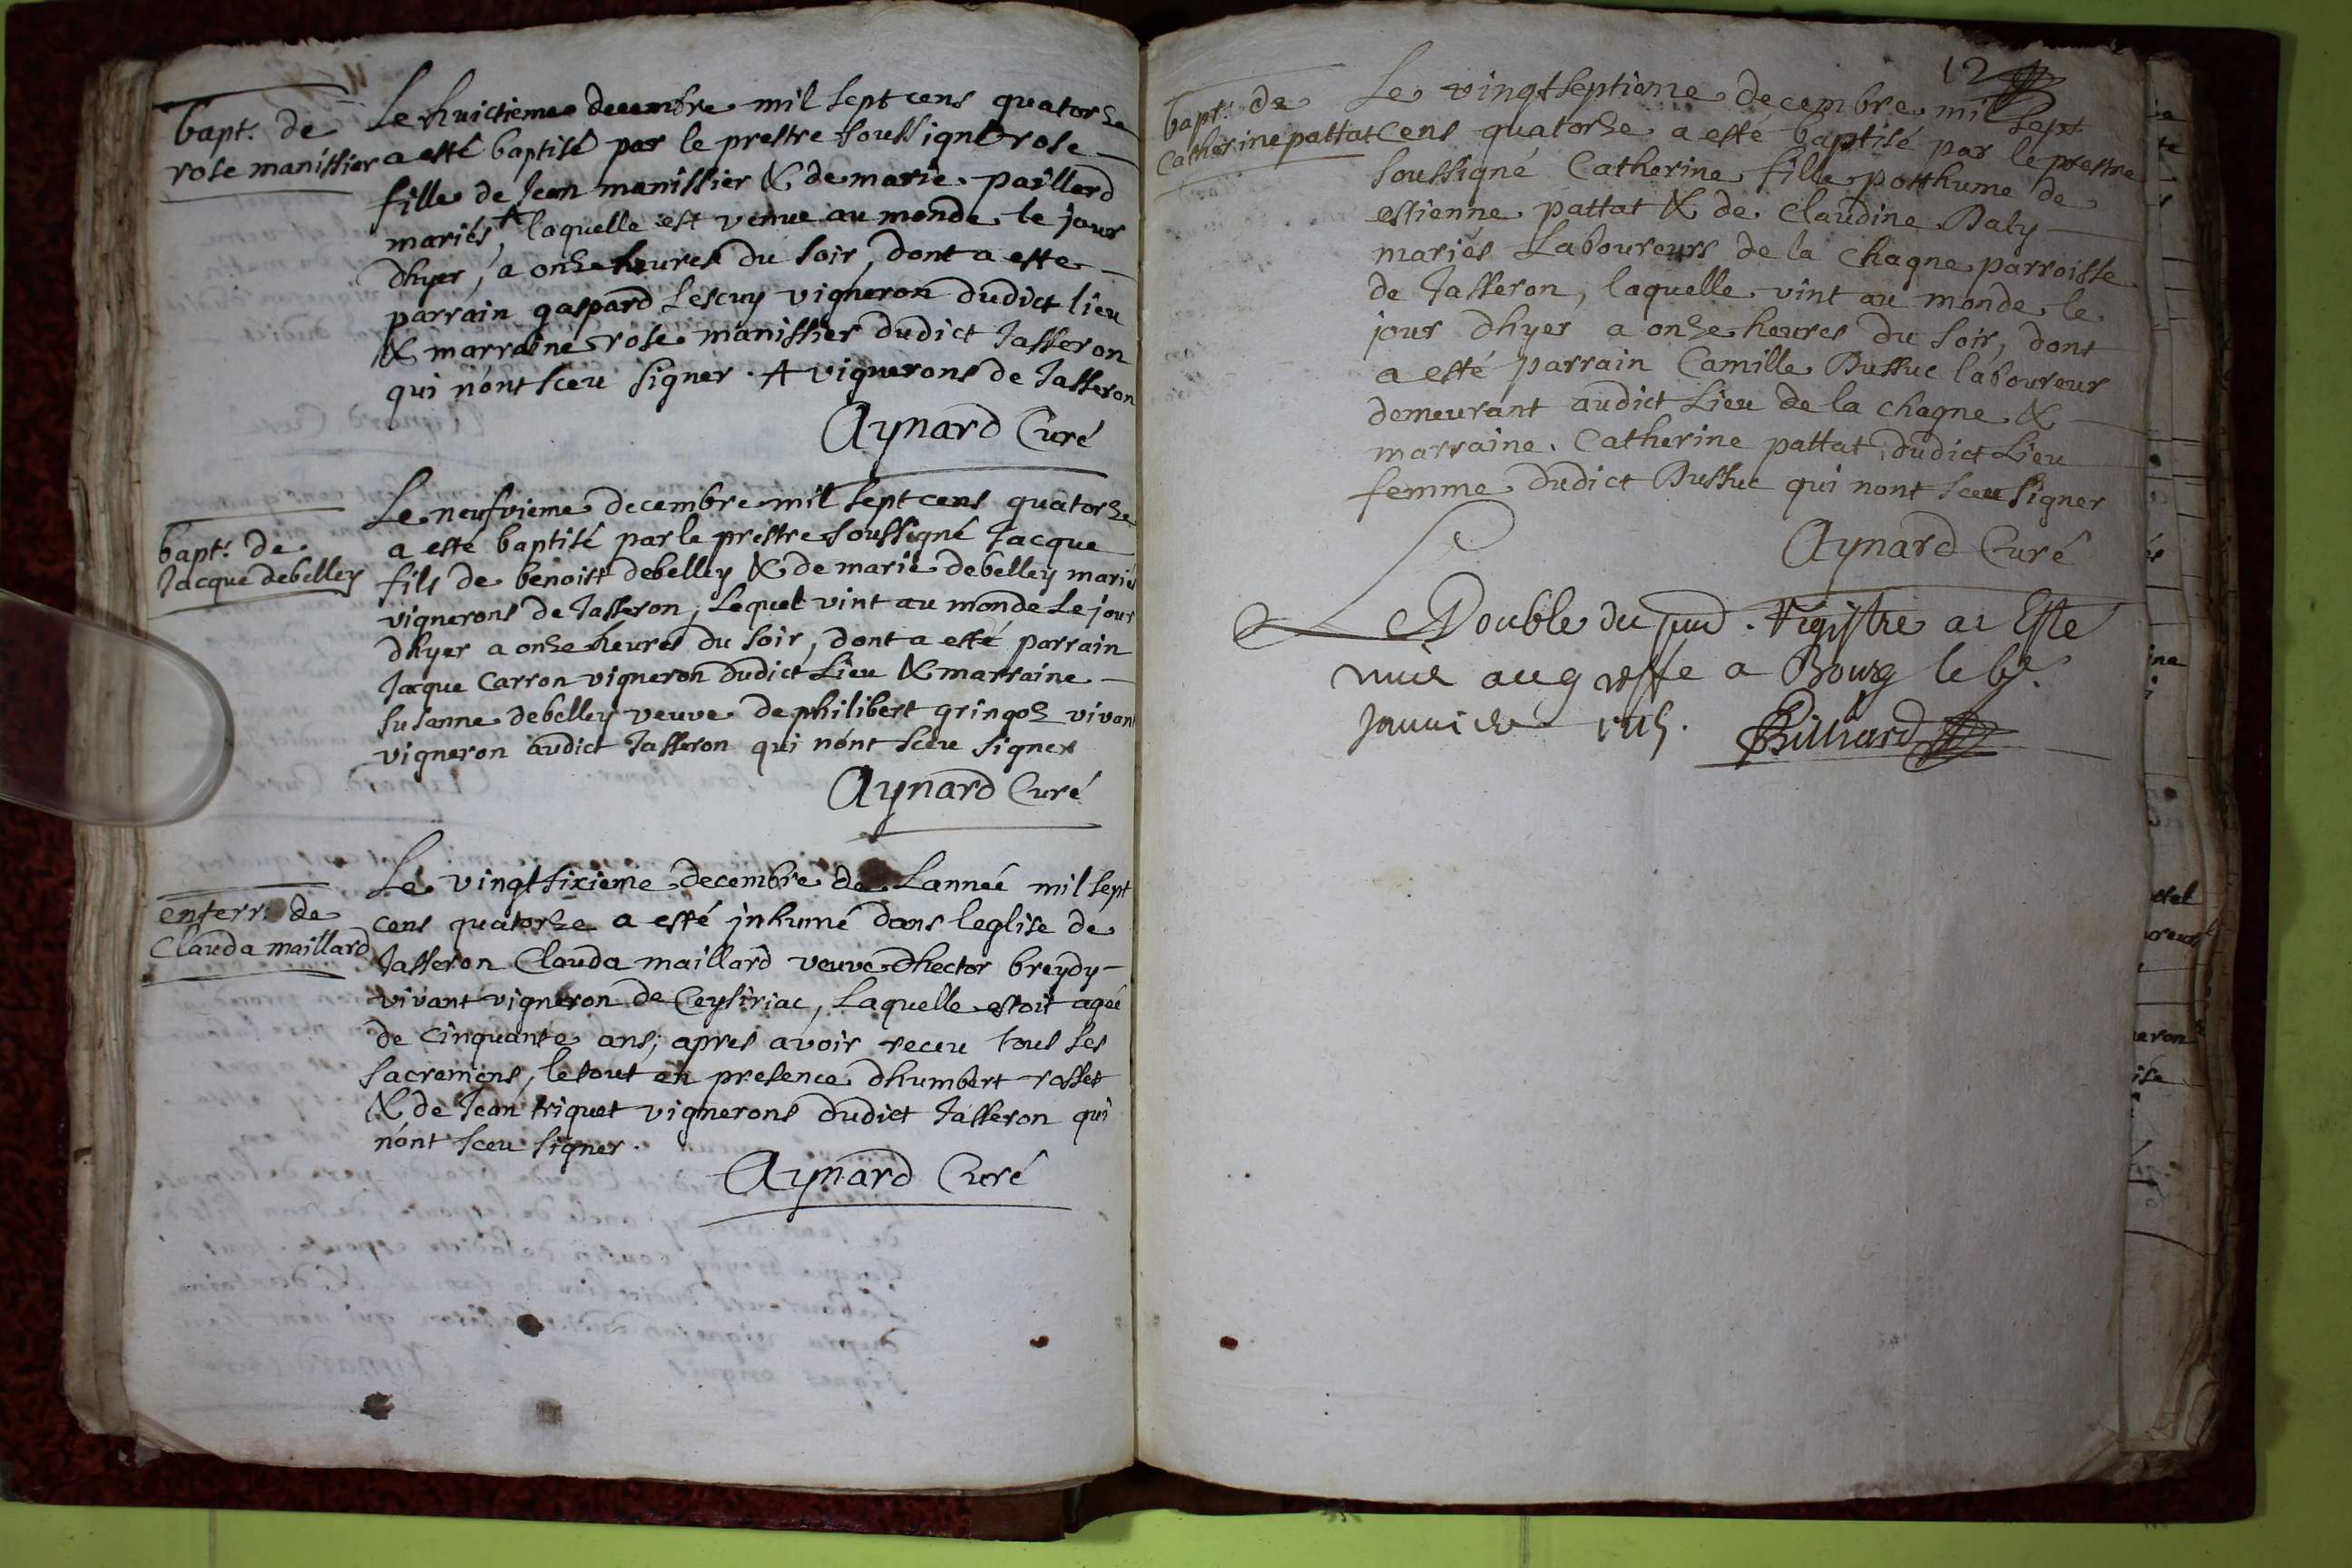 bapt. de
rose manissier
Le huictieme decembre mil sept cens quatorze
a esté baptisé par le prestre soussigné rose
fille de Jean manissier & de marie paillard
mariés, + laquelle est venue au monde le jour
dhyer, a onze heures du soir, dont a esté
parrain gaspard Lescuy vigneron dudict lieu
& marraine rose manissier dudict Jasseron
qui n'ont sceu signer. + vignerons de Jasseron
Aynard Curé
bapt. de
Jacque debelley
Le neufvieme decembre mil sept cens quatorze
a esté baptisé par le prestre soussigné Jacque
fils de benoist debelley & de marie debelley mariés
vignerons de Jasseron, Lequel vint au monde Le jour
dhyer a onze heures du soir, dont a esté parrain
Jacque Carron vigneron dudict Lieu & marraine
susanne debelley veuve de philibert gringoz vivant
vigneron audict Jasseron qui n'ont sceu signer
Aynard Curé
enterr. de
Clauda maillard
Le vingt sixieme decembre de Lannée mil sept
cens quatorze a esté inhumé dans leglise de
Jasseron Clauda maillard veuve dhector breydy
vivant vigneron de Ceysiriac, Laquelle estoit agée
de cinquante ans, apres avoir receu tous ses
sacremens, le tout en presence dhumbert rosset
& de Jean triquet vignerons dudict Jasseron qui
n'ont sceu signer.
Aynard Curé
12
bapt. de
Catherine pattat
Le vingt septieme decembre mil sept
cens quatorze a esté baptisé par le prestre
soussigné Catherine fille posthume de
estienne pattat & de Claudine Baly
mariés Laboureurs de la Chagne parroisse
de Jasseron, laquelle vint au monde le
jour dhyer a onze heures du soir, dont
a esté parrain Camille Bussuc laboureur
demeurant audict Lieu de la chagne &
marraine Catherine pattat dudict Lieu
femme dudict Bussuc qui nont sceu signer
Aynard Curé
Le Double du pnt. registre a Esté
mis au greffe a Bourg le
Janvier 1715. Billiard